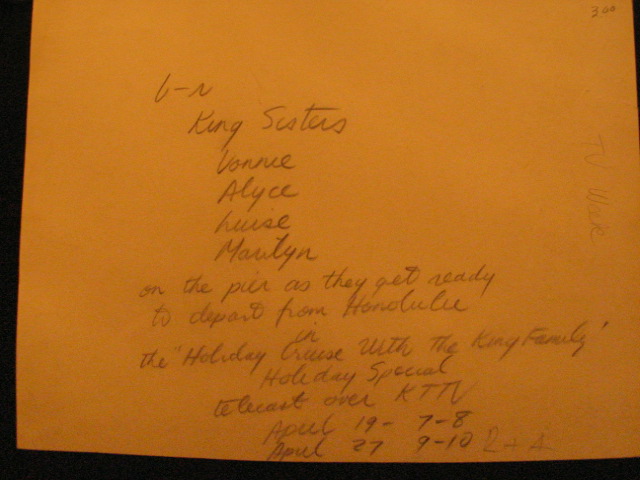 3.00
L-R
King Sisters
Vonnie
Alyce
Luise
Marilyn
on the pier as they get ready
to depart from Honolulu
in
the "Holiday Cruise With the King Family"
Holiday Special
telecast over KTTV
April 19- 7-8
April 27 9-10
TV Week